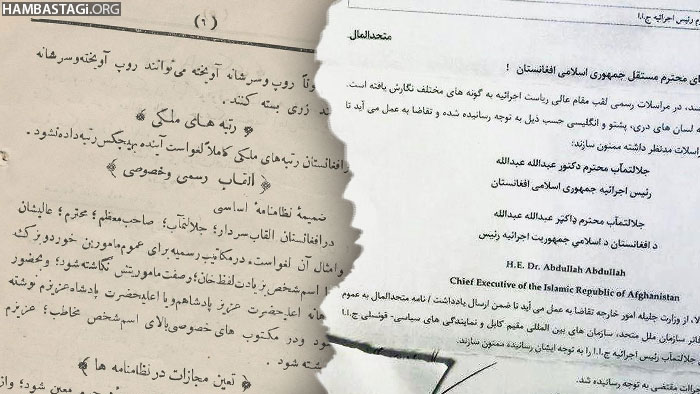 HAMBASTAGI.ORG
(٦)
روپ وسرشانه آویخته می‌توانند روپ آویخته وسرشانه
زری بسته کنند.
﴿ رتبه هــای ملــکی ﴾
افغانستان رتبه‌های ملکی کاملاً لغو است آینده بهیچکس رتبه داده نشود.
﴿ القــاب رسمی وخصوصی ﴾
ضمیمهٔ نظامنامهٔ اساسی
در افغانستان القاب سردار؛ جلالتمآب؛ صاحب معظم؛ محترم؛ عالیشان
وامثال آن لغو است. در مکاتیب رسمیه برای عموم مامورین خورد و بزرگ
اسم شخص بزیادت لفظ خان؛ وصفت ماموریتش نگاشته شود؛ وبحضور
اعلیحضرت عزیز پادشاهم ویا اعلیحضرت پادشاه عزیزم نوشته
ودر مکتوب های خصوصی بالای اسم شخص مخاطب؛ عزیزم
شته شود.
﴿ تعین مجازات در نظامنامه ها ﴾
معین شود؛ واز
م رئیس اجرائیه ج.ا.ا
متحدالمال
محترم مستقل جمهوری اسلامی افغانستان !
در مراسلات رسمی لقب مقام عالی ریاست اجرائیه به گونه های مختلف نگارش یافته است.
لسان های دری، پشتو و انگلیسی حسب ذیل به توجه رسانیده شده و تقاضا به عمل می آید تا
اسلات مدنظر داشته ممنون سازند:
جلالتمآب محترم دکتور عبدالله عبدالله
رئیس اجرائیه جمهوری اسلامی افغانستان
جلالتمآب محترم ډاکټر عبدالله عبدالله
د افغانستان د اسلامي جمهوریت اجرائیه رئیس
H.E. Dr. Abdullah Abdullah
Chief Executive of the Islamic Republic of Afghanistan
از وزارت جلیله امور خارجه تقاضا به عمل می آید تا ضمن ارسال یادداشت / نامه متحدالمال به عموم
سازمان ملل متحد، سازمان های بین المللی مقیم کابل و نمایندگی های سیاسی- قونسلی ج.ا.ا
جلالتمآب رئیس اجرائیه ج.ا.ا را به توجه ایشان رسانیده ممنون سازند.
اجراات مقتضی به توجه رسانیده شد.